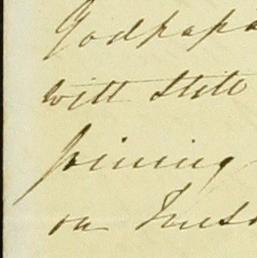 Godpapa
will still
joining
on Tues